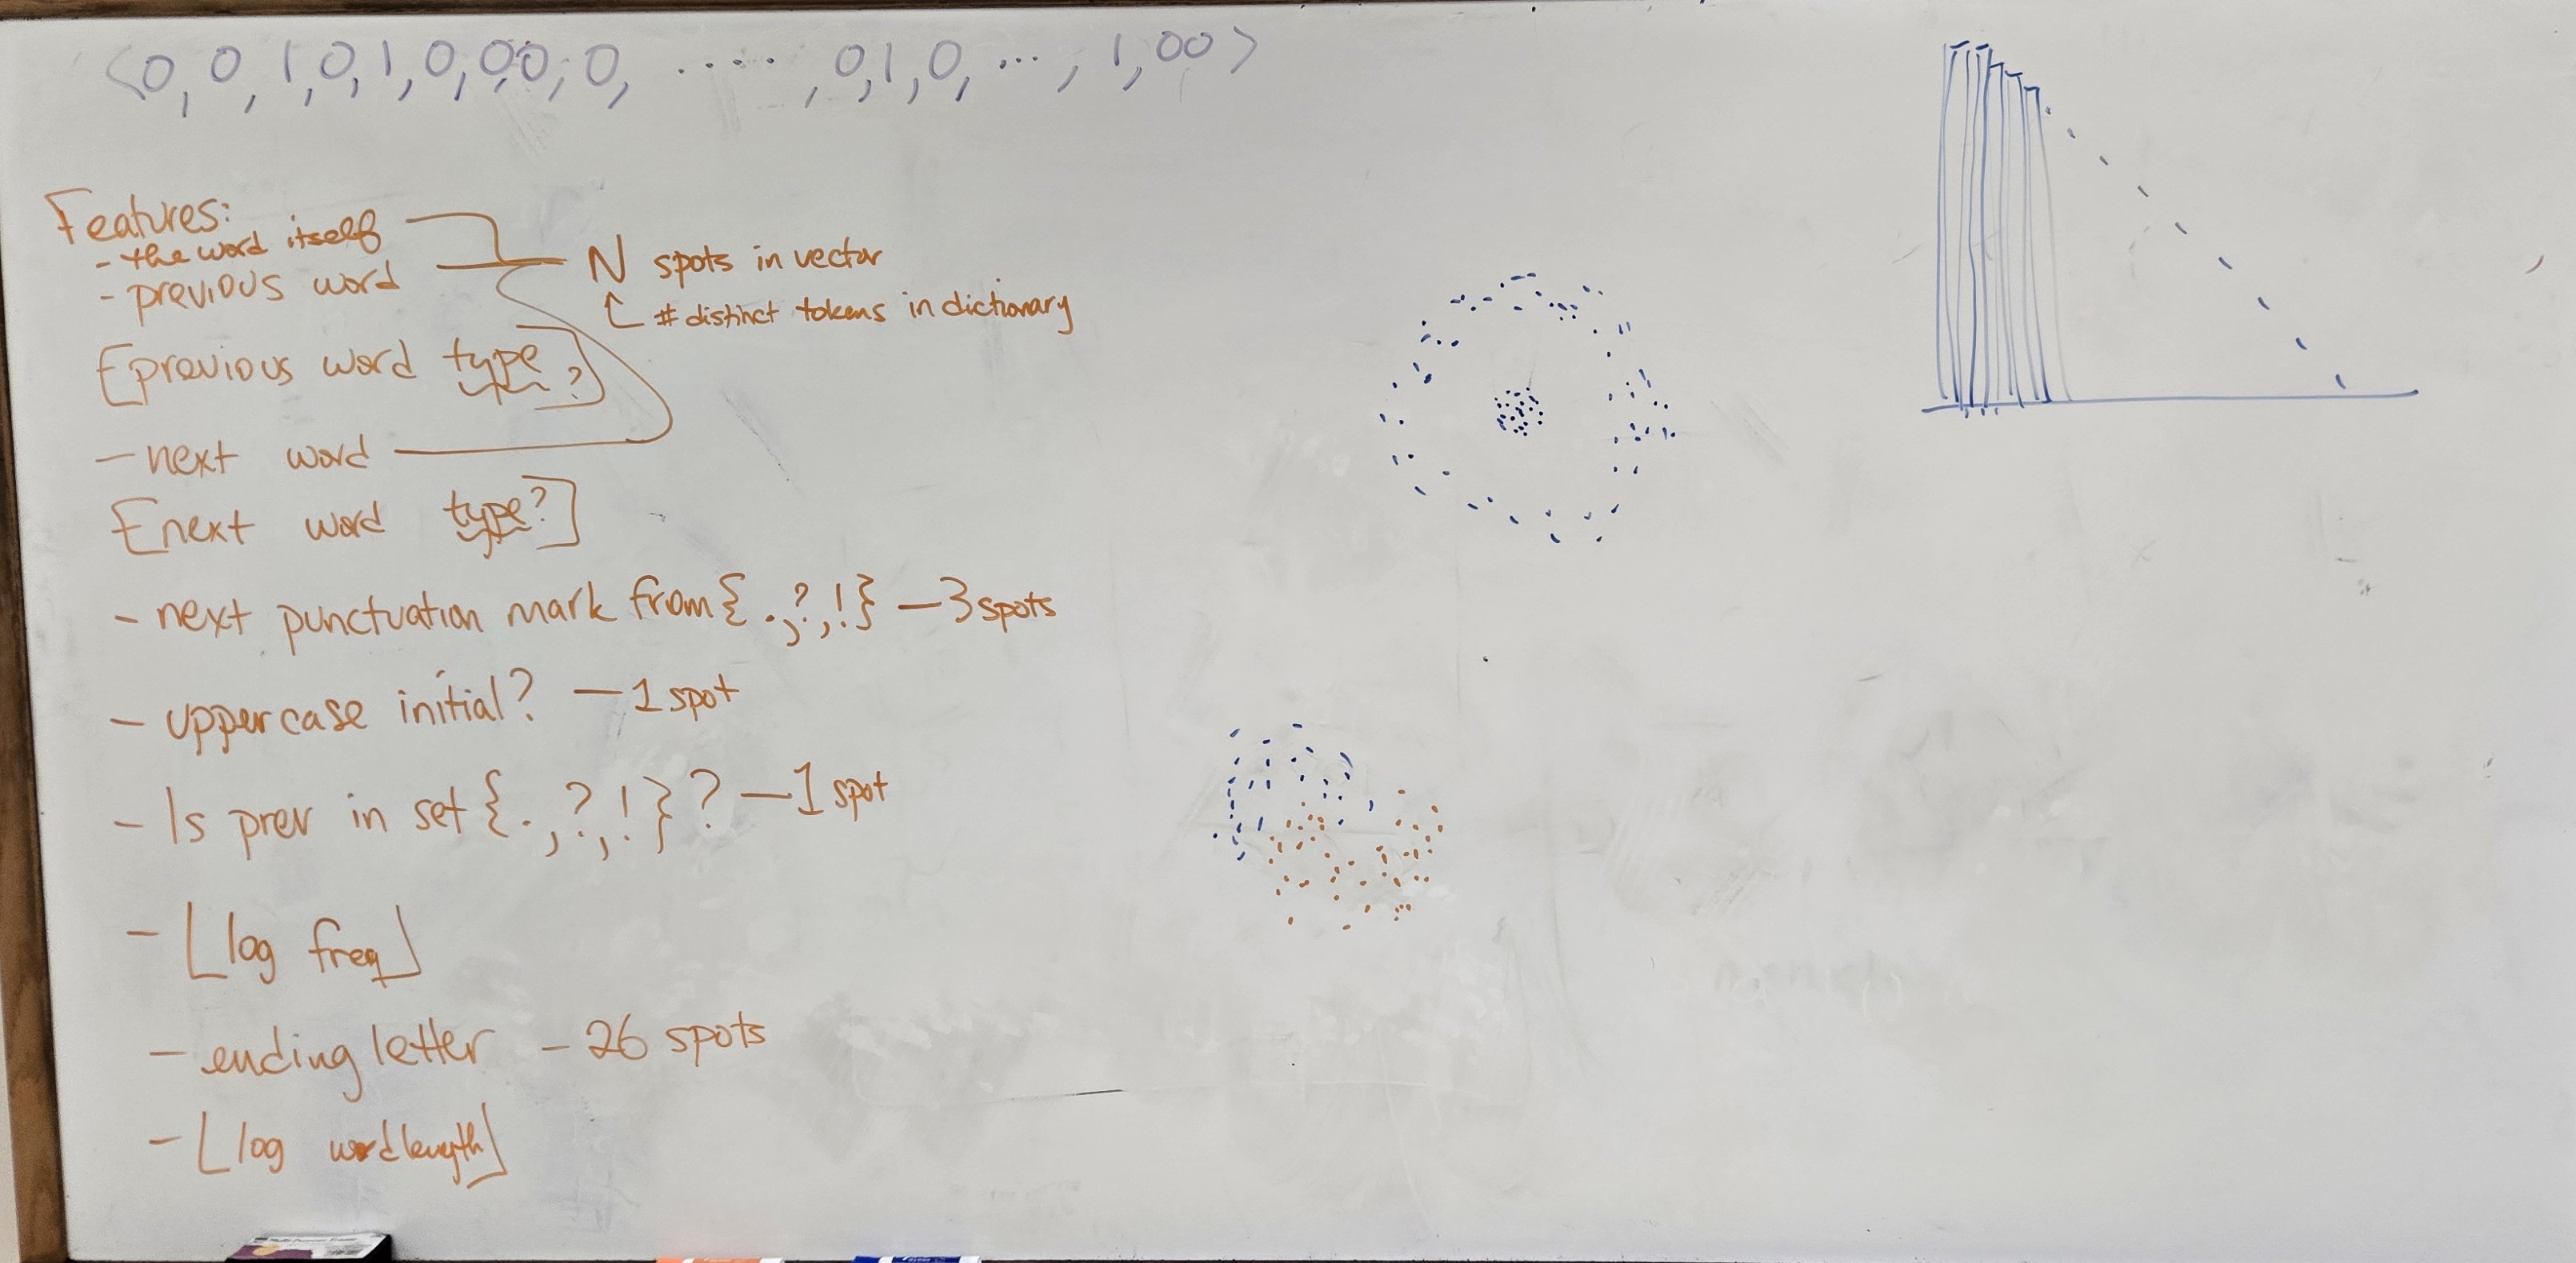 <0, 0, 1, 0, 1, 0, 0, 0, 0, ....., 0, 1, 0, ..., 1, 00>
Features:
- the word itself
- previous word
N spots in vector
# distinct tokens in dictionary
[previous word type?]
- next word
[next word type?]
- next punctuation mark from {., ?, !} - 3 spots
- uppercase initial? - 1 spot
- Is prev in set {., ?, !}? - 1 spot
- ⌊log freq⌋
- ending letter - 26 spots
- ⌊log wordlength⌋